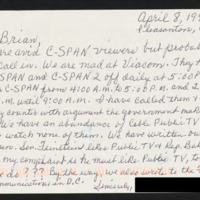 April 8, 199
Pleasanton,
Brian,
are avid C-SPAN viewers but probab
call in. We are mad at Viacom. They t
SPAN and C-SPAN 2 off daily at 5:00P
C-SPAN from 4:00 A.M. to 5:00 P.M. and 2
M. until 9:00 A.M. I have called them &
counter with argument the government ma
We have an abundance of Cable Public TV
watch none of them. We have written ou
Sen. Feinstein likes Public TV & Rep. Bak
my complaint so he must like Public TV, to
do ??? By the way, we also wrote to the
mmunications in D.C. Sincerely,